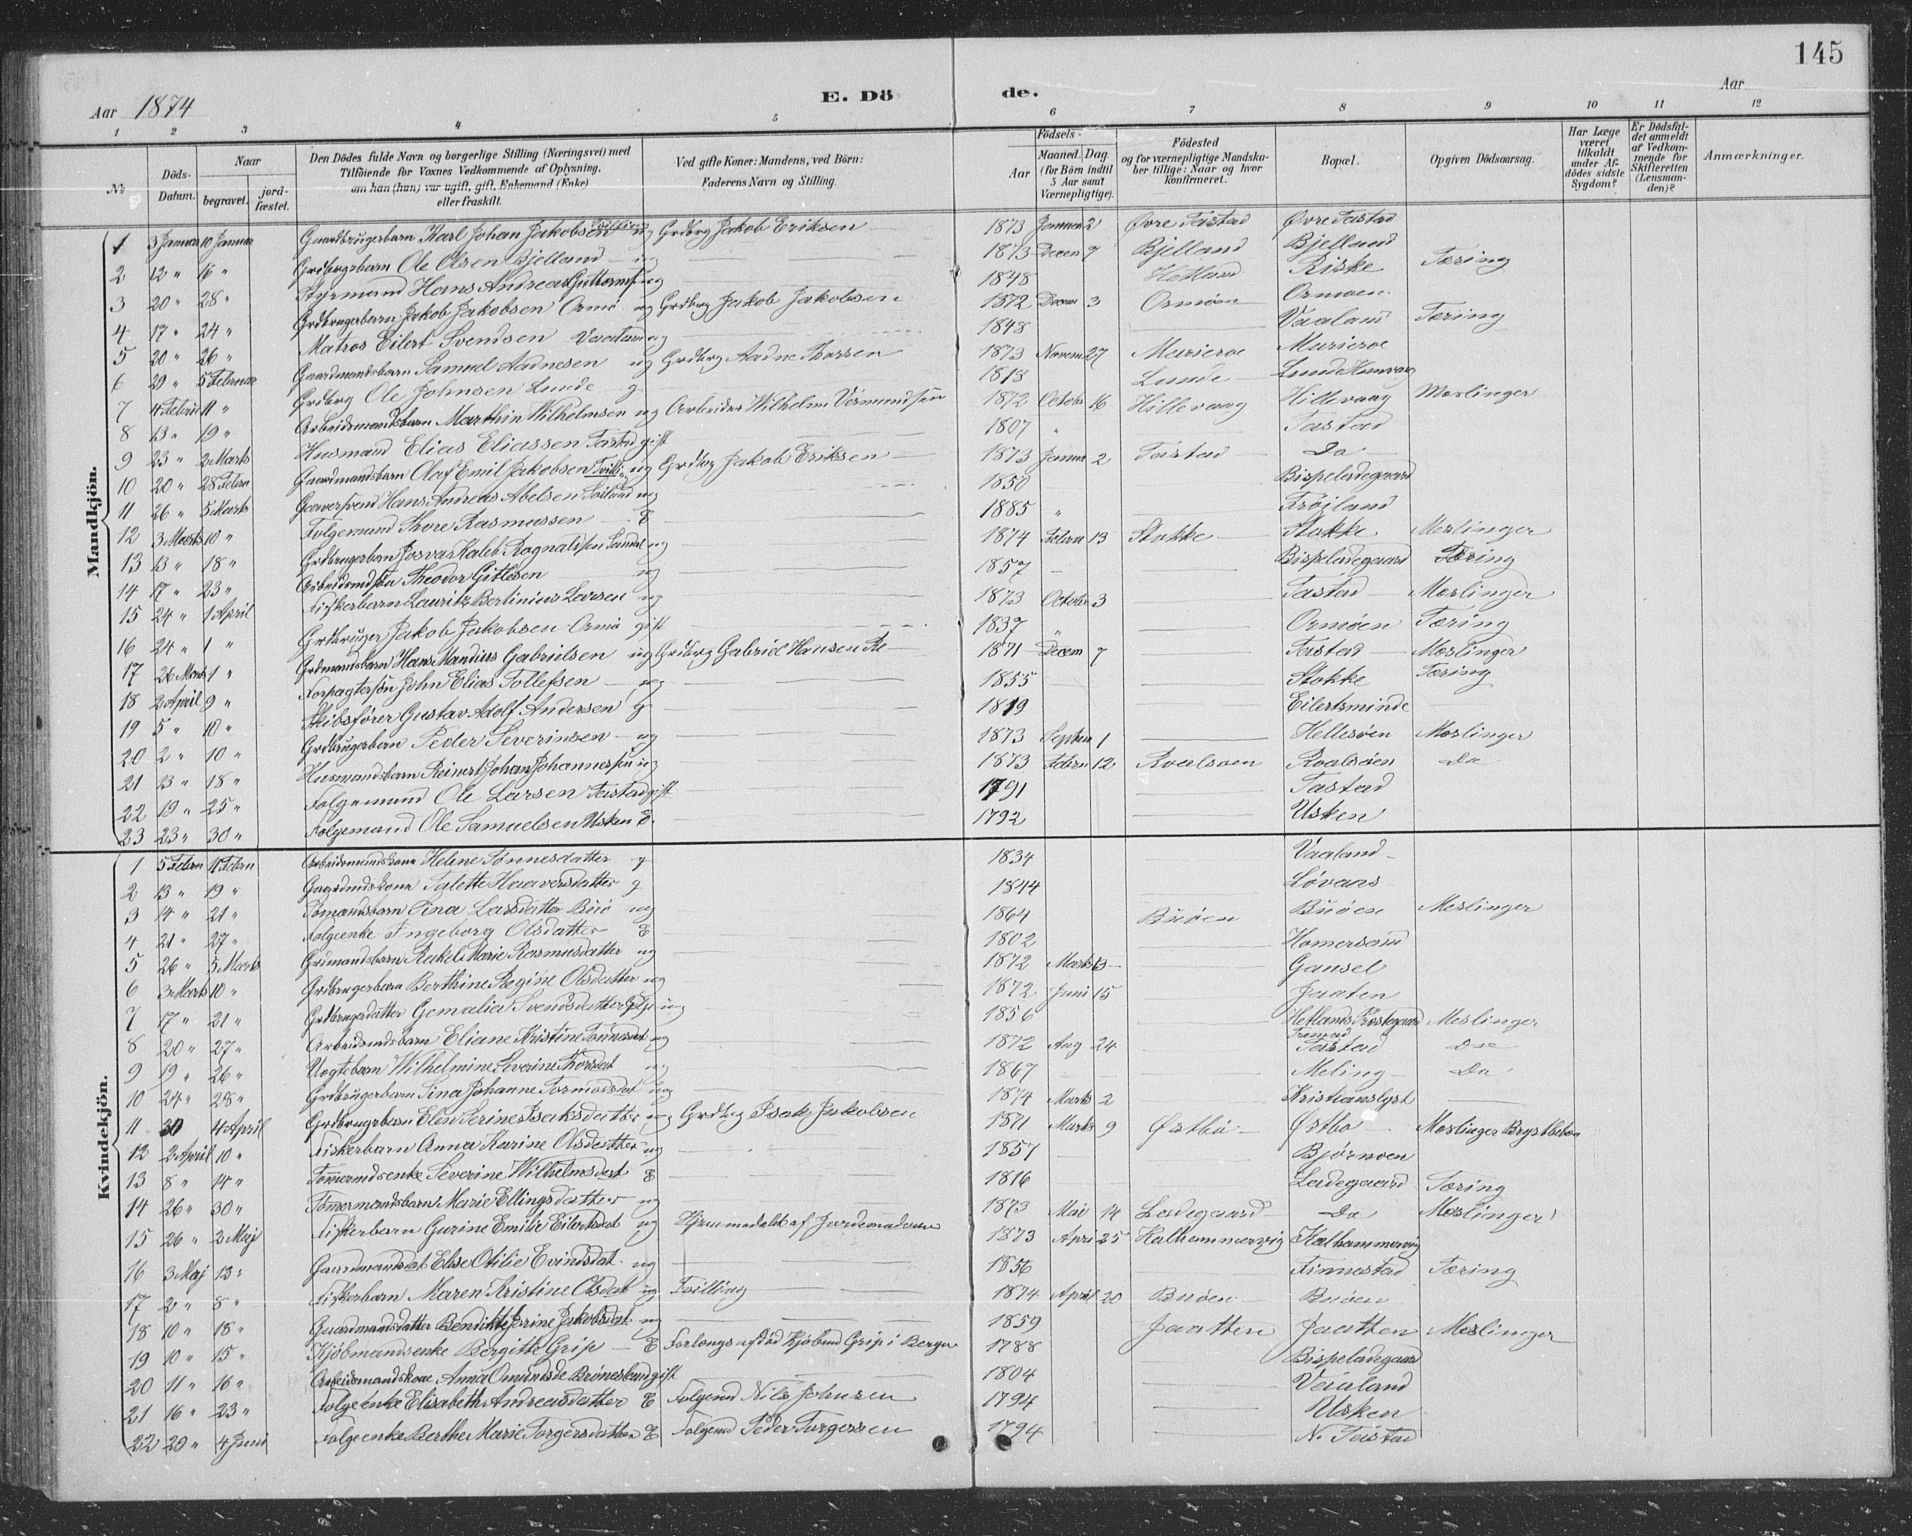 145
Aar 1874
E. Dö de.
Aar
1 2 3 4 5 6 7 8 9 10 11 12
No
Döds-Datum.
Naar begravet. jord-fæstet.
Den Dödes fulde Navn og borgerlige Stilling (Næringsvei) med Tilföiende for Voxnes Vedkommende af Oplysning, om han (hun) var ugift, gift, Enkemand (Enke) eller fraskilt.
Ved gifte Koner: Mandens, ved Börn: Faderens Navn og Stilling.
Födsels-
Aar
Maaned. Dag (for Börn indtil 5 Aar samt Værnepligtige).
Födested og for værnepligtige Mandskaber tillige: Naar og hvor konfirmeret.
Bopæl.
Opgiven Dödsaarsag.
Har Læge været tilkaldt under Afdödes sidste Sygdom?
Er Dödsfaldet anmeldt af Vedkommende for Skifteretten (Lensmanden)?
Anmærkninger.
Mandkjön.
1 3 Januar 10 Januar Gaardbrugerbarn Karl Johan Jakobsen ug Grdbrg Jakob Eriksen 1873 Januar 2 Øvre Tastad Øvre Tastad
2 12 " 16 " Grdbrgerbarn Ole Olsen Bjelland ug 1873 Decem 7 Bjelland Bjelland Tæring
3 20 " 28 " Styrmand Hans Andreas Guttorms ug 1848 Hetland Riske
4 17 " 24 " Grdbrugerbarn Jakob Jakobsen Ormø ug Grdbrg Jakob Jakobsen 1872 Decem 3 Ormøen Ormøen
5 20 " 26 " Matros Eilert Svendsen ug 1848 Vaaland Tæring
6 29 " 5 Februar Gaardmandsbarn Samuel Aadnesen ug Grdbrg Aadne Thorsen 1873 Novem 27 Marieroe Marieroe
7 4 Febru 11 " Grdbrg Ole Johnsen Lunde g 1813 Lunde Lund
8 13 " 19 " Arbeidsmandsbarn Marthin Wilhelmsen ug Arbeider Wilhelm Vermundsen 1872 Octobr 16 Hillevaag Hillevaag Mæslinger
9 23 " 2 Marts Husmand Elias Eliassen Tastad gift 1807 " Tastad
10 20 " 28 Febru Gaardmandsbarn Olaf Emil Jakobsen Tvill. ug Grdbrg Jakob Eriksen 1873 Januar 2 Tastad Do
11 26 " 5 Marts Hans Andreas Abelsen ug 1850 Bispeladegaard
12 3 Marts 10 " Folgemand Thore Rasmussen E 1885 " Frøiland
13 13 " 18 " Grdbrugerbarn Josva Kaleb Rognaldsen ug 1874 Febru 13 Stokke Stokke Mæslinger
14 17 " 23 " Arbeidsmdsøn Theodor Gitlesen ug 1857 Bispeladegaard Tæring
15 24 " 1 April Fiskerbarn Lauritz Berlinius Larsen ug 1873 Octobr 3 Tastad Mæslinger
16 24 " 1 " Grdbruger Jakob Jakobsen Ormø gift 1837 " Ormøen Tæring
17 26 Marts 1 " Grdmandsbarn Hans Mandius Gabrielsen ug Grdbrg Gabriel Hansen 1871 Decem 7 Tastad Mæslinger
18 2 April 9 " Forpagtersøn John Elias Tollefsen ug 1855 Stokke Tæring
19 5 " 10 " Skibsfører Gustav Adolf Andersen g 1819 Eilertsminde
20 2 " 10 " Grdbrugerbarn Peder Severinsen ug 1873 Septem 1 Hellesøen Mæslinger
21 13 " 18 " Husmandsbarn Reinert Johan Johannessen ug 1873 Febru 12 Roalsøen Roalsøen Do
22 19 " 25 " Folgemand Ole Larsen Tastad gift 1791 Tastad
23 23 " 30 " Folgemand Ole Samuelsen Usken E. 1792 Usken
Kvindekjön.
1 5 Febru 11 Febru Arbeidsmandskone Helene Tønnesdatter g 1834 Vaaland
2 13 " 19 " Salette Haaversdatter g 1844 Løvaas
3 14 " 21 " Sina Larsdatter Buø ug 1864 Buøen Buøen Mæslinger
4 21 " 27 " Folgeenke Ingeborg Olsdatter E 1802 Homersand
5 26 " 5 Marts Grdmandsbarn Rakel Marie Rasmusdatter ug 1872 Marts 13 Gausel
6 3 Marts 10 " Grdbrugerbarn Berthine Regine Olsdatter ug 1872 Juni 15 Jaaten
7 17 " 21 " Grdbrugerdatter Gemalia Svendsdatter ug 1856 Hetlands Præstegaard Mæslinger
8 20 " 27 " Arbeidsmdsbarn Eliane Kristine Tønnesdat ug 1872 Aug 24 Tastad Do
9 19 " 26 " Vogtebarn Wilhelmine Severine Thorsdat ug 1867 Meling Do
10 24 " 28 " Grdbrugerbarn Sina Johanne Tormodsdat ug 1874 Marts 2 Kristianslyst
11 30 4 April Grdbrugerbarn Elen Serine Isaksdatter ug Grdbrg Isak Jakobsen 1871 Marts 9 Østbø Østbø Mæslinger
12 2 April 10 " Fiskerbarn Anna Karine Olsdatter ug 1857 Bjørnøen
13 8 " 14 " Tømmermdsenke Severine Wilhelmsdat E 1816 Ladegaard Tæring
14 26 " 30 " Tømmermandsbarn Marie Ellingsdatter ug 1873 Mai 14 Ladegaard Do Mæslinger
15 26 " 2 Maj Fiskerbarn Gurine Emilie Eilertsdat ug Hjemmedøbt af Jordemoderen 1873 April 25 Kalhammervig Kalhammervig
16 3 Maj 13 " Gaardmandsdat Elise Otilie Evindsdat ug 1856 Finnestad Tæring
17 2 " 8 " Fiskerbarn Maren Kristine Olsdat ug Tvilling 1874 April 20 Buøen Buøen
18 10 " 18 " Gaardmandsdatter Bendikte Serine Jakobsdat ug 1859 Jaatten Jaatten Mæslinger
19 10 " 15 " Kjøbmandsenke Bergitte Grip E Forlængst afdød Kjøbmd Grip i Bergen 1788 Bispeladegaard
20 11 " 16 " Arbeidsmandskone Anna Omundsd. gift 1804 Vaaland
21 16 " 23 " Folgeenke Elisabeth Andreasdatter E Folgemd Nils Johnsen 1794 Usken
22 29 " 4 Juni Folgeenke Berthe Marie Torgersdatter E Folgemd Peder Torgersen 1794 N. Tastad